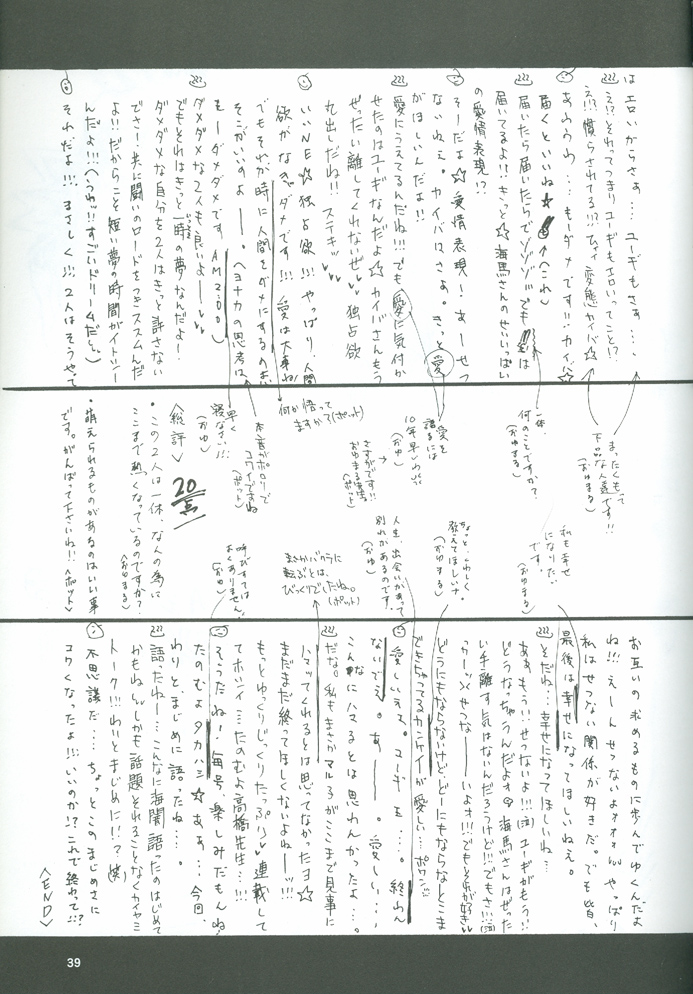 は エロいからさぁ…ユーギもさぁ…、
え!?それってつまりユーギもエロいってこと!?
え!?慣らされてる!?!ひゃぁ変態カイバ☆
あわわわ…もーダメです!!カイバ☆
届くといいね★(へこれ)
届いたら届いたらでゾゾゾ…でも
届いてるよ!!きっと☆海馬さんのせいいっぱい
の愛情表現!?
そーだよ☆愛情表現!あーせつ
ないねえ。カイバはさぁ。きっと愛
がほしいんだよ!!
愛にうえてるんだね!!!でも愛に気付か
せたのはユーギなんだよ☆カイバさんもう
ぜったい離してくれないぜ♥♥独占欲
丸出しだね!!ステキ…♥♥
いいNE☆独占欲!!!やっぱり人間
欲がなきゃダメです!!!愛は大事ね!
でもそれが時に人間をダメにするのよ!!
そこがいいのよー。ヘヨナカの思考は、
もーダメダメです AM2:00)
ダメダメな2人も良いよー♥♥
でもそれはきっと一時の夢なんだよー!
ダメダメな自分を2人はきっと許さない
でさ!共に闘いのロードをつきススムんだ
よ!!だからこそ短い夢の時間がイトシー
んだよ!!!(へうわッ!!すごいドリームだし)
それだよ!!!まさしく!!!2人はそうやって
まったくもって
下品な人達です!!
(おゆまる)
一体、
何のことですか?
(おゆまる)
愛を
語るには
10年早いわ!!
(おゆ)
さすがです!!
(ポット)
何か悟って
ますかで(ポット)
本音がポロリで
コワイですね
(ポット)
早く
寝なさい!!!
(おゆ)
<総評>
20点
・この2人は一体、なんの為に
ここまで熱くなっているのですか?
<おゆまる>
・萌えられるものがあるのはいい事
です。がんばって下さいね!!<ポット>
私も幸せ
になりたい
です。
(おゆまる)
ちょっと、くわしく
教えてほしいナ
(おゆまる)
人生、出会いがあって
別れがあるのです
(おゆ)
まさかバクラに
転ぶとは、
びっくりでしたね。
(ポット)
呼びすては
よくありません。
(おゆ)
お互いの求めるものに歩んでゆくんだよ
ね!!!えーんせつないよォォォんやっぱり
私はせつない関係が好きだ。でも皆、
最後は幸せになってほしいねぇ。
そだね…幸せになってほしいね…
ああもう!!せつないよ!!!(泣)ユーギがもう!!
どうなっちゃうんだよォ 海馬さんはぜった
い手離す気はないんだろうけど!!でもさ!!!(泣)
っかーッ せつなーーいよォ!!!でもそれが好き♥
どうにもならないけどどーにもならなとこま
できちゃってるカンケイが愛しい…ポワワン♡
愛しいよ。ユーギ も…。終わん
ないでぇ。あー。愛しい…、
こんなにハマるとは思わんかったよ…。
だな。私もまさかマル3がここまで見事に
ハマってくれるとは思ってなかったヨ☆
まだまだ終ってほしくないよねーッ!!!
もっとゆっくりじっくりたっぷり♥連載して
てホシイ…たのむよ高橋先生…!!!
そうだね!毎号、楽しみだもんね。
たのむよタカハシ☆あぁ…今回、
わりと、まじめに語ったね…。
語ったねー…こんなに海闇語ったのはじめて
かもねぃ しかも話題それることなくカイヤミ
トーク!!!わいとまじめに!!?(笑)
不思議だ…ちょっとこのまじめさに
コワくなったよ!!!いいのか!?これで終わって!!?
<END>
39